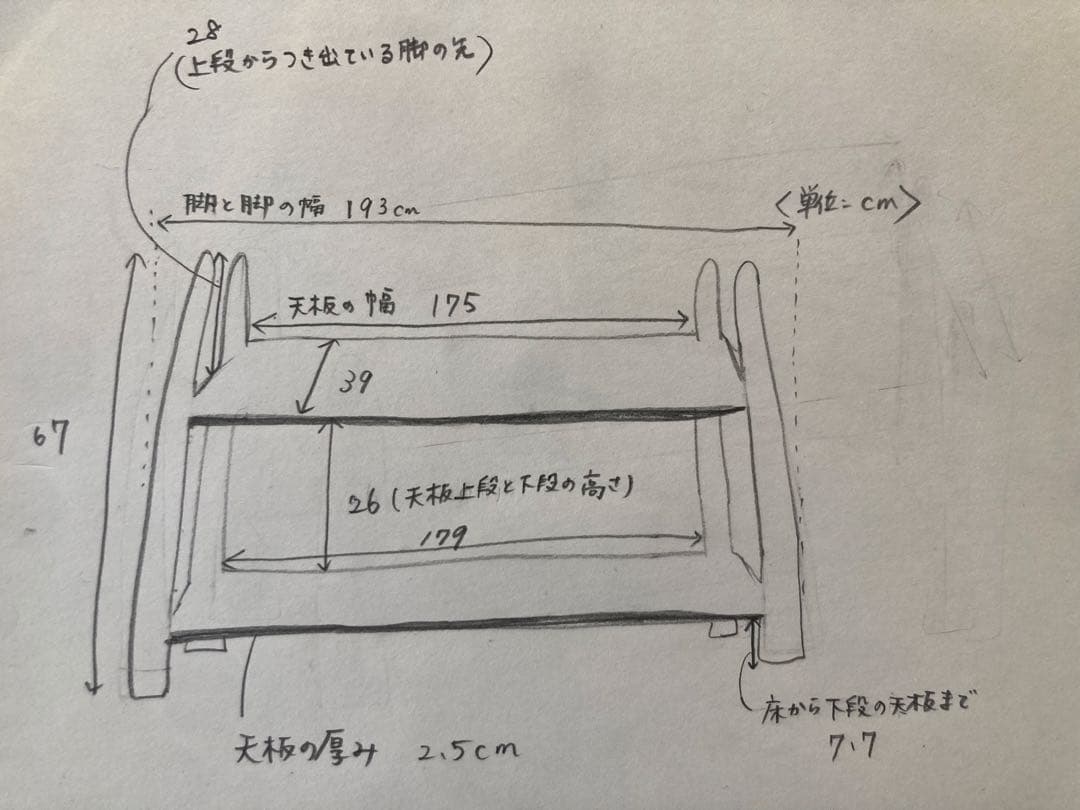 28
(上段からつき出ている脚の先)
脚と脚の幅 193cm
<単位=cm>
天板の幅 175
39
67
26 (天板上段と下段の高さ)
179
床から下段の天板まで
7.7
天板の厚み 2.5cm